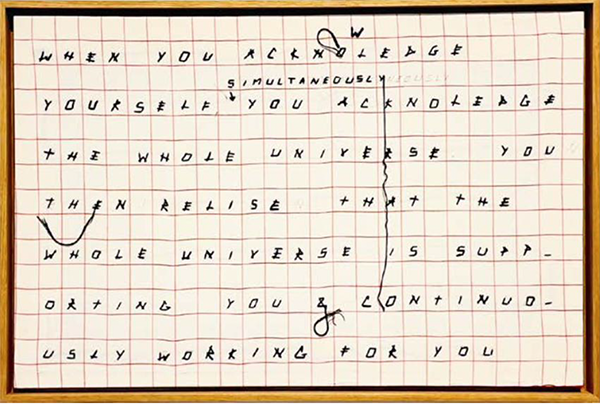 W
WHEN YOU ACKNOLEDGE
SIMULTANEOUSLY
YOURSELF YOU ACKNOLEDGE
THE WHOLE UNIVERSE YOU
THEN RELISE THAT THE
WHOLE UNIVERSE IS SUPP_
ORTING YOU & CONTINUO_
USLY WORKING FOR YOU